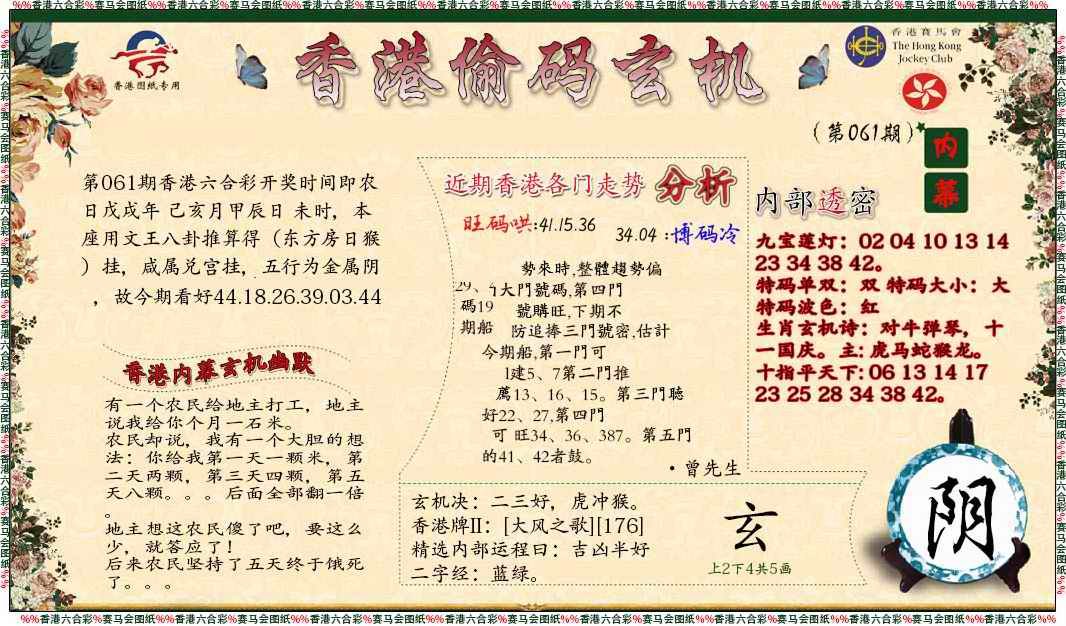 %%香港六合彩%赛马会图纸%%香港六合彩%赛马会图纸%%香港六合彩%赛马会图纸%%香港六合彩%赛马会图纸%%香港六合彩%赛马会图纸%%香港六合彩%赛马会图纸%%香港六合彩%赛马会图纸%%香港六合彩%%
香港图纸专用
香港偷码玄机
香港賽馬會
The Hong Kong
Jockey Club
(第061期)
内幕
第061期香港六合彩开奖时间即农
日戊戌年 己亥月甲辰日 未时，本
座用文王八卦推算得（东方房日猴
）挂，咸属兑宫挂，五行为金属阴
，故今期看好44.18.26.39.03.44
香港内幕玄机幽默
有一个农民给地主打工，地主
说我给你个月一石米。
农民却说，我有一个大胆的想
法：你给我第一天一颗米，第
二天两颗，第三天四颗，第五
天八颗。。。后面全部翻一倍
。
地主想这农民傻了吧，要这么
少，就答应了！
后来农民坚持了五天终于饿死
了。。。
近期香港各门走势 分析
旺码哄:41.15.36
34.04 :博码冷
勢來時,整體趨勢偏
29、4大門號碼,第四門
碼19 號購旺,下期不
期船 防追捧三門號密,估計
今期船,第一門可
1建5、7第二門推
薦13、16、15。第三門聽
好22、27,第四門
可 旺34、36、387。第五門
的41、42者鼓。
·曾先生
玄机决：二三好，虎冲猴。
香港牌II：[大风之歌][176]
精选内部运程曰：吉凶半好
二字经：蓝绿。
玄
上2下4共5画
内部透密
九宝莲灯：02 04 10 13 14
23 34 38 42。
特码单双：双 特码大小：大
特码波色：红
生肖玄机诗：对牛弹琴，十
一国庆。主: 虎马蛇猴龙。
十指平天下: 06 13 14 17
23 25 28 34 38 42。
阴
%%香港六合彩%赛马会图纸%%香港六合彩%赛马会图纸%%香港六合彩%赛马会图纸%%香港六合彩%赛马会图纸%%香港六合彩%赛马会图纸%%香港六合彩%赛马会图纸%%香港六合彩%赛马会图纸%%香港六合彩%%